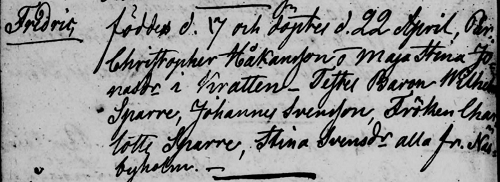 Fredric, föddes d. 17 och döptes d. 22 April, Par.
Christopher Håkanson o Maja Stina Jo-
nasdr i Kratten – Testes Baron Wilhelm
Sparre, Johannes Svenson, Fröken Char
lotte Sparre, Stina Svensdr alla fr. Näs-
byholm. –